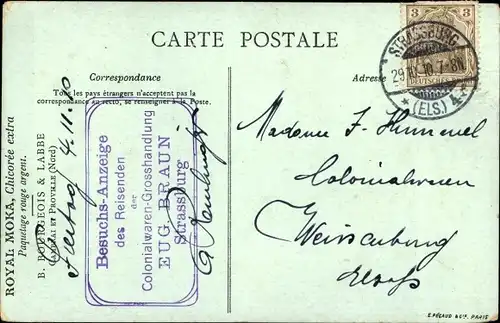 CARTE POSTALE
Correspondance
Tous les pays étrangers n'acceptent pas la
correspondance au recto, se renseigner à la Poste.
Adresse
ROYAL MOKA, Chicorée extra
Paquetage rouge argent.
B. BOURGEOIS & LABBE
CAMBRAI ET PROVILLE (Nord)
Freitag 4.11.10
Besuchs-Anzeige
des Reisenden
der
Colonialwaren-Grosshandlung
EUG. BRAUN
Strassburg
3
DEUTSCHES
STRASSBURG
29.10.10.7-8N
* (ELS.) 4
Madame F. Hummel
Colonialwaren
Weissenburg
Elsass
E. PÉCAUD & Cie. PARIS